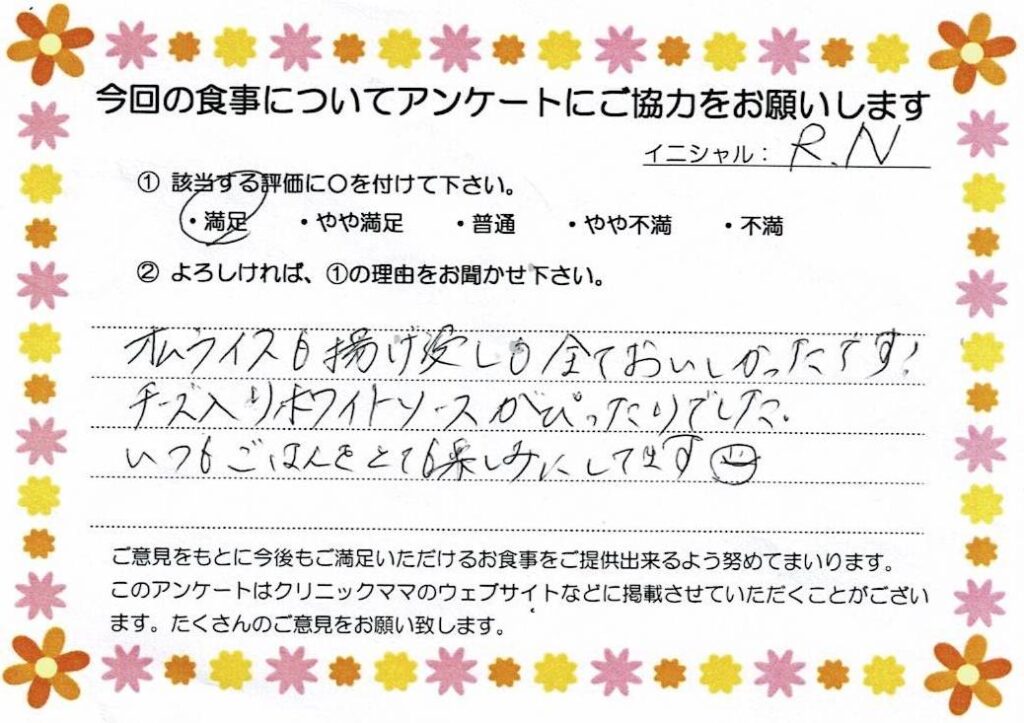 今回の食事についてアンケートにご協力をお願いします
イニシャル： R.N
① 該当する評価に〇を付けて下さい。
・満足 ・やや満足 ・普通 ・やや不満 ・不満
② よろしければ、①の理由をお聞かせ下さい。
オムライスも揚げ浸しも全ておいしかったです!
チーズ入りホワイトソースがぴったりでした。
いつもごはんをとても楽しみにしてます
ご意見をもとに今後もご満足いただけるお食事をご提供出来るよう努めてまいります。
このアンケートはクリニックママのウェブサイトなどに掲載させていただくことがござい
ます。たくさんのご意見をお願い致します。